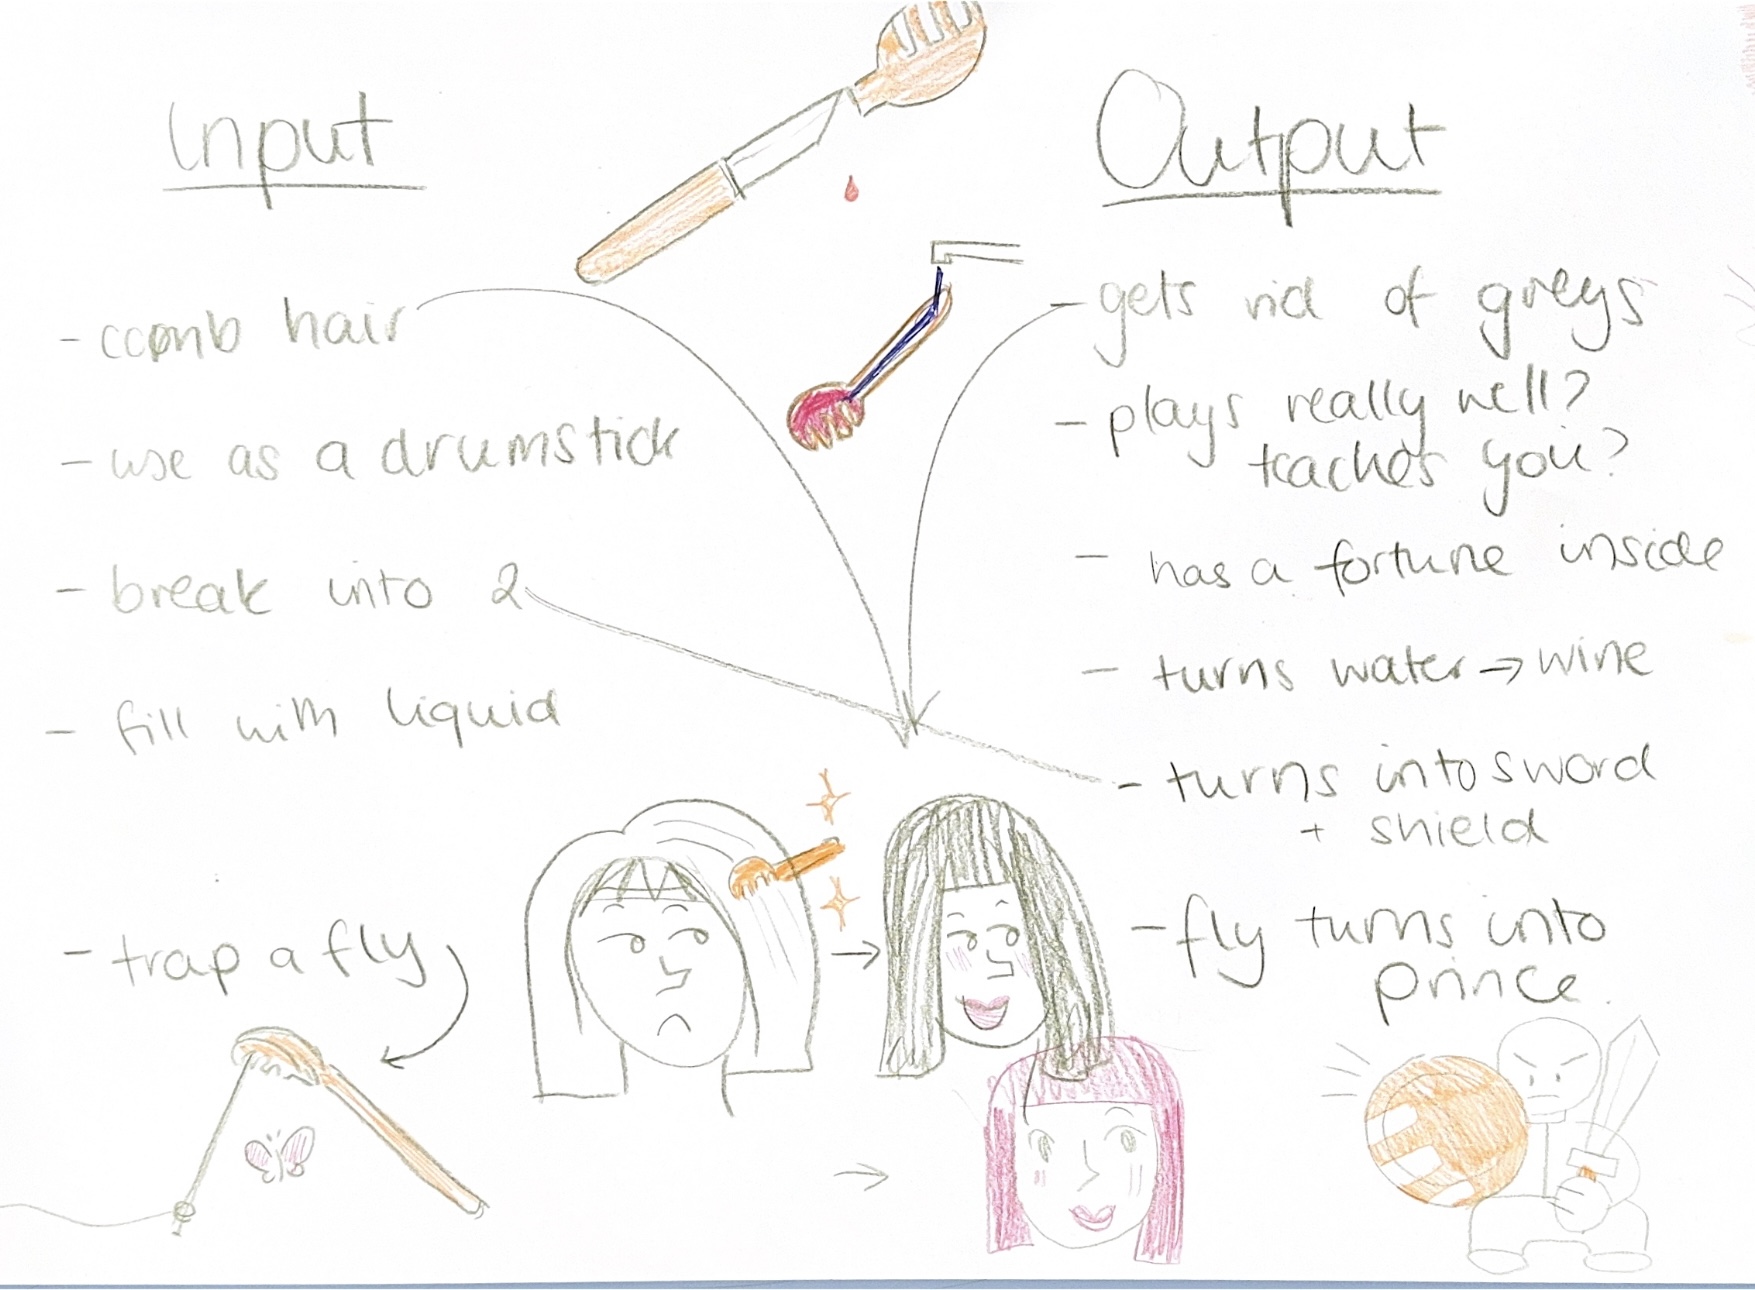 Input
- comb hair
- use as a drumstick
- break into 2
- fill with liquid
- trap a fly
Output
- gets rid of greys
- plays really well?
teaches you?
- has a fortune inside
- turns water → wine
- turns into sword
+ shield
- fly turns into
prince.